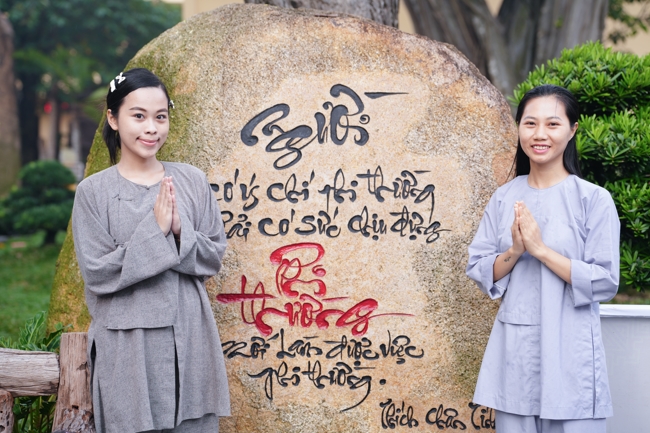 Người
có ý chí phi thường
Phải có sức chịu đựng
Phi
thường
mới làm được việc
phi thường.
Thích Chân Tính